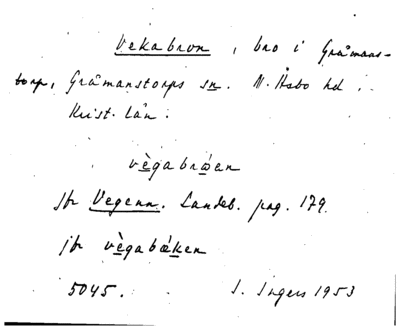 Vekabron, bro i Gråmans-
torp, Gråmanstorps sn. N. Åsbo hd.
Krist. län.
vègabrɷen
jfr Vegenn. Landeb. pag. 179.
jfr vègabǽken
5045. I. Ingers 1953